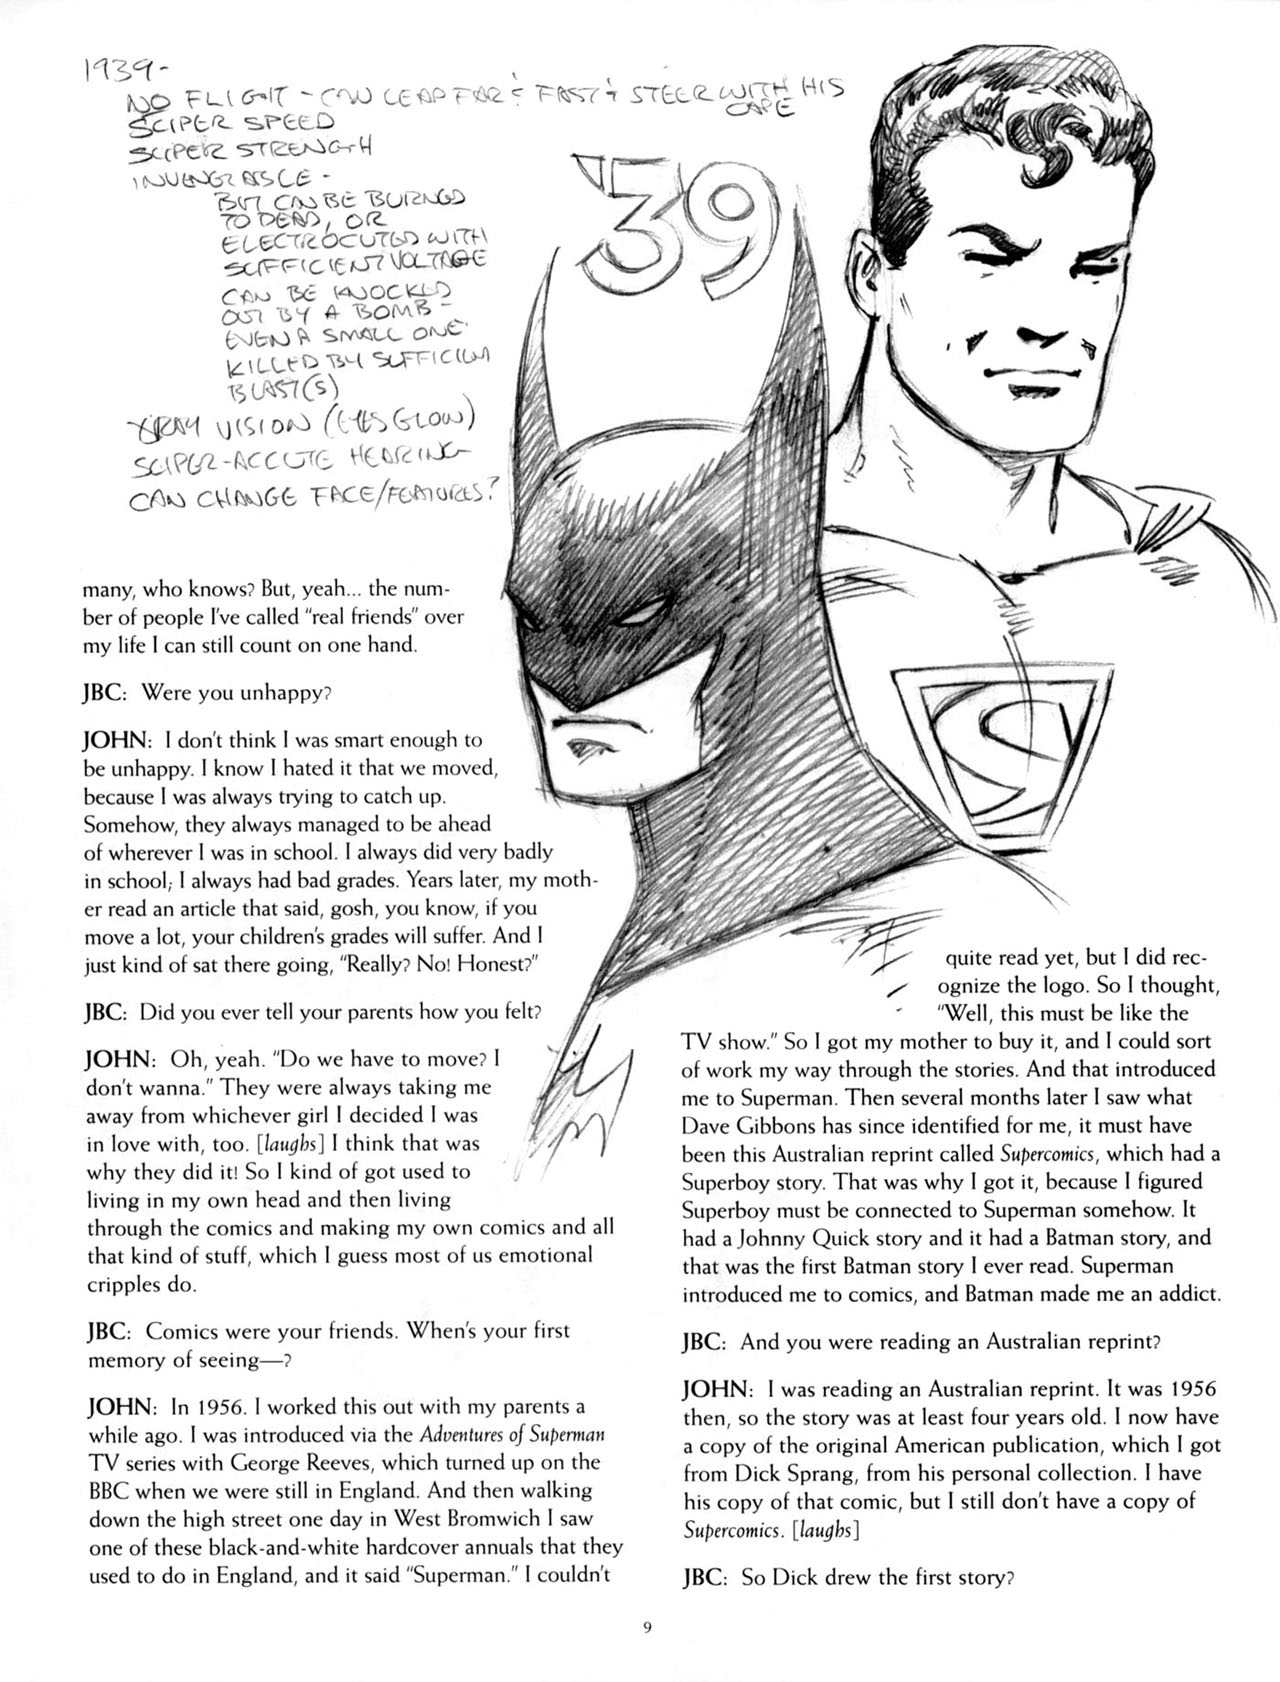 1939-
NO FLIGHT - CAN LEAP FAR & FAST & STEER WITH HIS
CAPE
SUPER SPEED
SUPER STRENGTH
INVULNERABLE -
BUT CAN BE BURNED
TO DEAD, OR
ELECTROCUTED WITH
SUFFICIENT VOLTAGE
CAN BE KNOCKED
OUT BY A BOMB -
EVEN A SMALL ONE.
KILLED BY SUFFICIEN
BLAST(S)
XRAY VISION (EYES GLOW)
SUPER-ACCUTE HEARING-
CAN CHANGE FACE/FEATURES?
'39
S
many, who knows? But, yeah... the num-
ber of people I've called "real friends" over
my life I can still count on one hand.
JBC: Were you unhappy?
JOHN: I don't think I was smart enough to
be unhappy. I know I hated it that we moved,
because I was always trying to catch up.
Somehow, they always managed to be ahead
of wherever I was in school. I always did very badly
in school; I always had bad grades. Years later, my moth-
er read an article that said, gosh, you know, if you
move a lot, your children's grades will suffer. And I
just kind of sat there going, "Really? No! Honest?"
JBC: Did you ever tell your parents how you felt?
JOHN: Oh, yeah. "Do we have to move? I
don't wanna." They were always taking me
away from whichever girl I decided I was
in love with, too. [laughs] I think that was
why they did it! So I kind of got used to
living in my own head and then living
through the comics and making my own comics and all
that kind of stuff, which I guess most of us emotional
cripples do.
JBC: Comics were your friends. When's your first
memory of seeing—?
JOHN: In 1956. I worked this out with my parents a
while ago. I was introduced via the Adventures of Superman
TV series with George Reeves, which turned up on the
BBC when we were still in England. And then walking
down the high street one day in West Bromwich I saw
one of these black-and-white hardcover annuals that they
used to do in England, and it said "Superman." I couldn't
quite read yet, but I did rec-
ognize the logo. So I thought,
"Well, this must be like the
TV show." So I got my mother to buy it, and I could sort
of work my way through the stories. And that introduced
me to Superman. Then several months later I saw what
Dave Gibbons has since identified for me, it must have
been this Australian reprint called Supercomics, which had a
Superboy story. That was why I got it, because I figured
Superboy must be connected to Superman somehow. It
had a Johnny Quick story and it had a Batman story, and
that was the first Batman story I ever read. Superman
introduced me to comics, and Batman made me an addict.
JBC: And you were reading an Australian reprint?
JOHN: I was reading an Australian reprint. It was 1956
then, so the story was at least four years old. I now have
a copy of the original American publication, which I got
from Dick Sprang, from his personal collection. I have
his copy of that comic, but I still don't have a copy of
Supercomics. [laughs]
JBC: So Dick drew the first story?
9